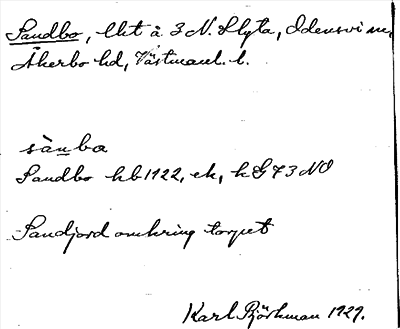 Sandbo, lht å 3 N. Slyta, Odensvi sn,
Åkerbo hd, Västmanl. l.
sànba
Sandbo hb 1922, ek, kG 73 NO
Sandjord omkring torpet
Karl Björkman 1929.